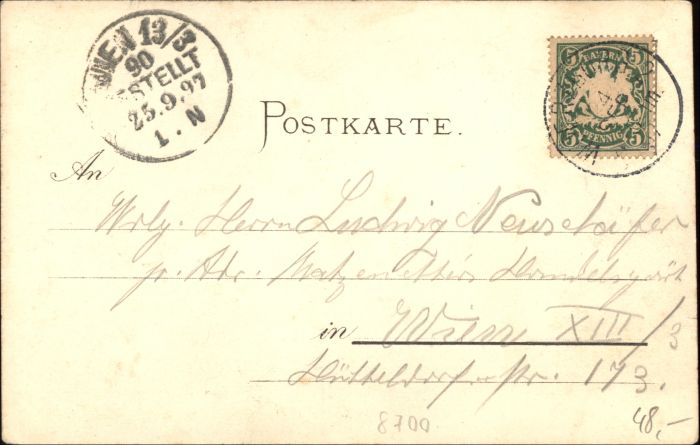 WIEN 13/3
90
BESTELLT
25.9.97
1. N
BAYERN
5 5
5 5
PFENNIG
POSTKARTE.
An
Wolg. Herrn Ludwig Neuschäfer
p. Adr. Handelsgärt
in Wien XIII/3
Hütteldorferstr. 173.
8700
48,-